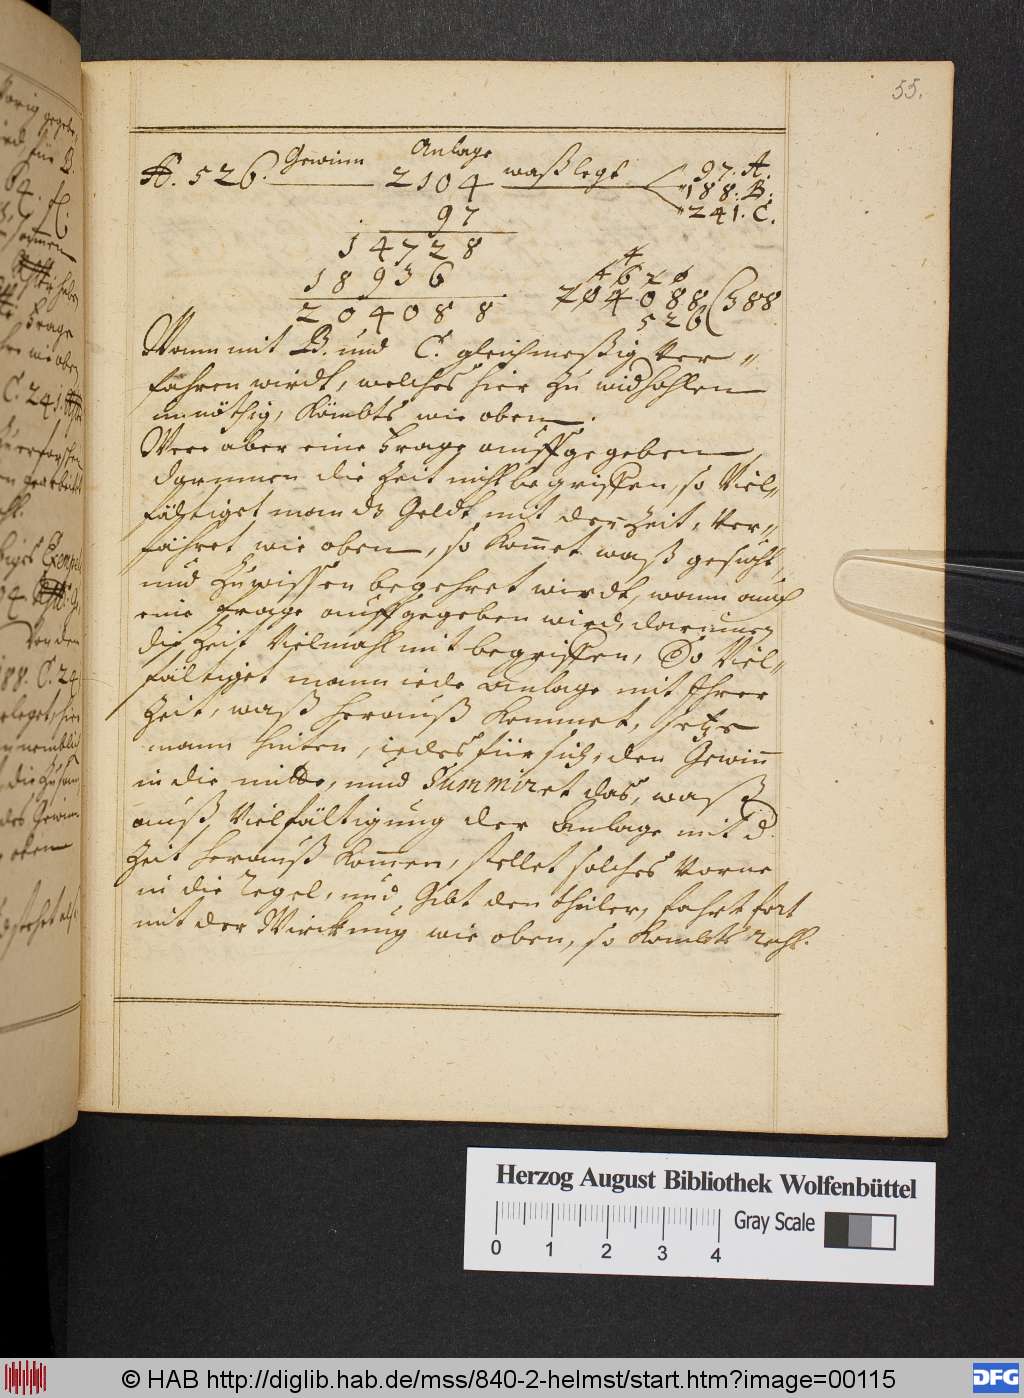 55.
Gewinn Anlage
526. 2104 waß legt 97. A.
188. B.
241. C.
97
14728
18936
204088
4
4620
204088 (388
526
Wann mit B. und C. gleichmeßig Ver-
fahren wirdt, welches hier zu widhohlen
unnöthig, Kömbts wie oben.
Were aber eine Frage auffgegeben
darinnen die Zeit nicht begriffen, so Viel-
fältiget man dz Geldt mit der Zeit, Ver-
fähret wie oben, so Kommet waß gesucht
und zu wissen begehret wirdt, wann auch
eine frage auffgegeben wird, darinnen
die Zeit Vielmahl mit begriffen, So Viel-
fältiget mann iede anlage mit Ihrer
Zeit, waß herauß Kommet, setze
mann hinten, iedes für sich, den Gewinn
in die mitte, und Summiret das, waß
auß Vielfältigung der anlage mit d.
Zeit herauß Kommen, stellet solches Vorne
in die Regel, und, Gibt den theiler, fahrt fort
mit der Wirckung wie oben, so Kombts Recht.
Herzog August Bibliothek Wolfenbüttel
Gray Scale
0 1 2 3 4
© HAB http://diglib.hab.de/mss/840-2-helmst/start.htm?image=00115
DFG